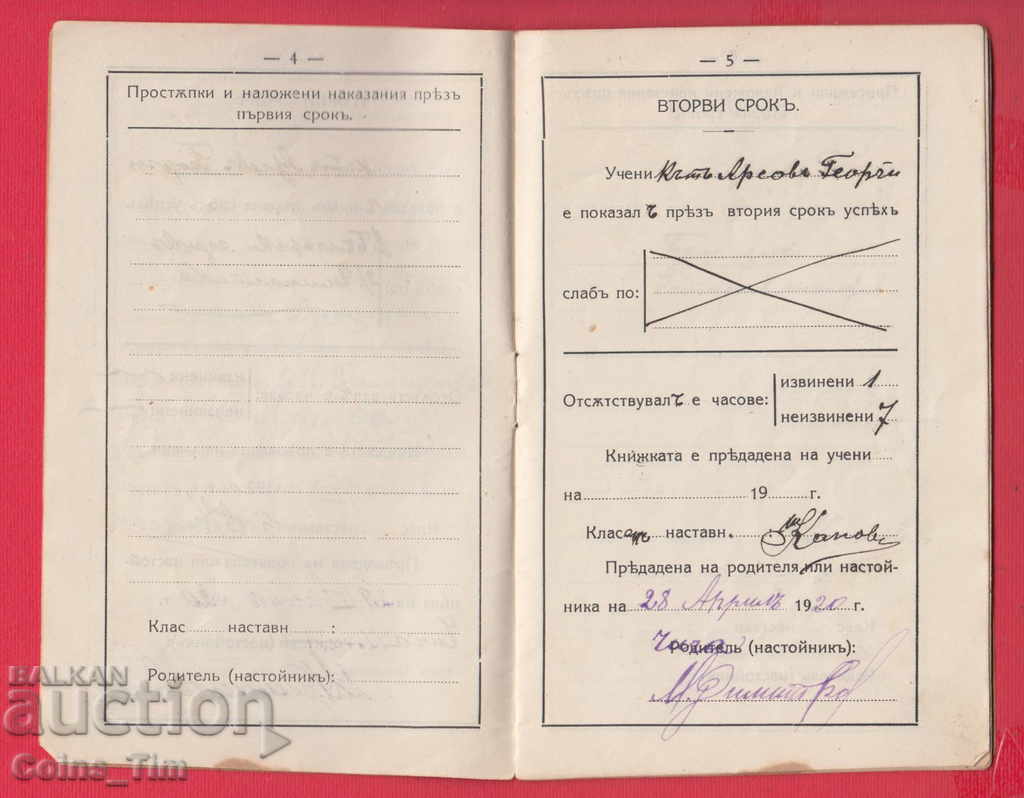 — 4 —
Простѫпки и наложени наказания прѣзъ
първия срокъ.
Клас наставн :
Родитель (настойникъ):
— 5 —
ВТОРВИ СРОКЪ.
Учениkътъ Арсовъ Георги
е показалъ прѣзъ втория срокъ успѣхъ
слабъ по:
Отсѫтствувалъ е часове:
извинени 1
неизвинени 7
Книжката е прѣдадена на учени
на 19 г.
Клас наставн.:
Прѣдадена на родителя или настой-
ника на 28 Априлъ 1920 г.
Родитель (настойникъ):
М. Димитров
BALKAN
auction
Coins_Tim